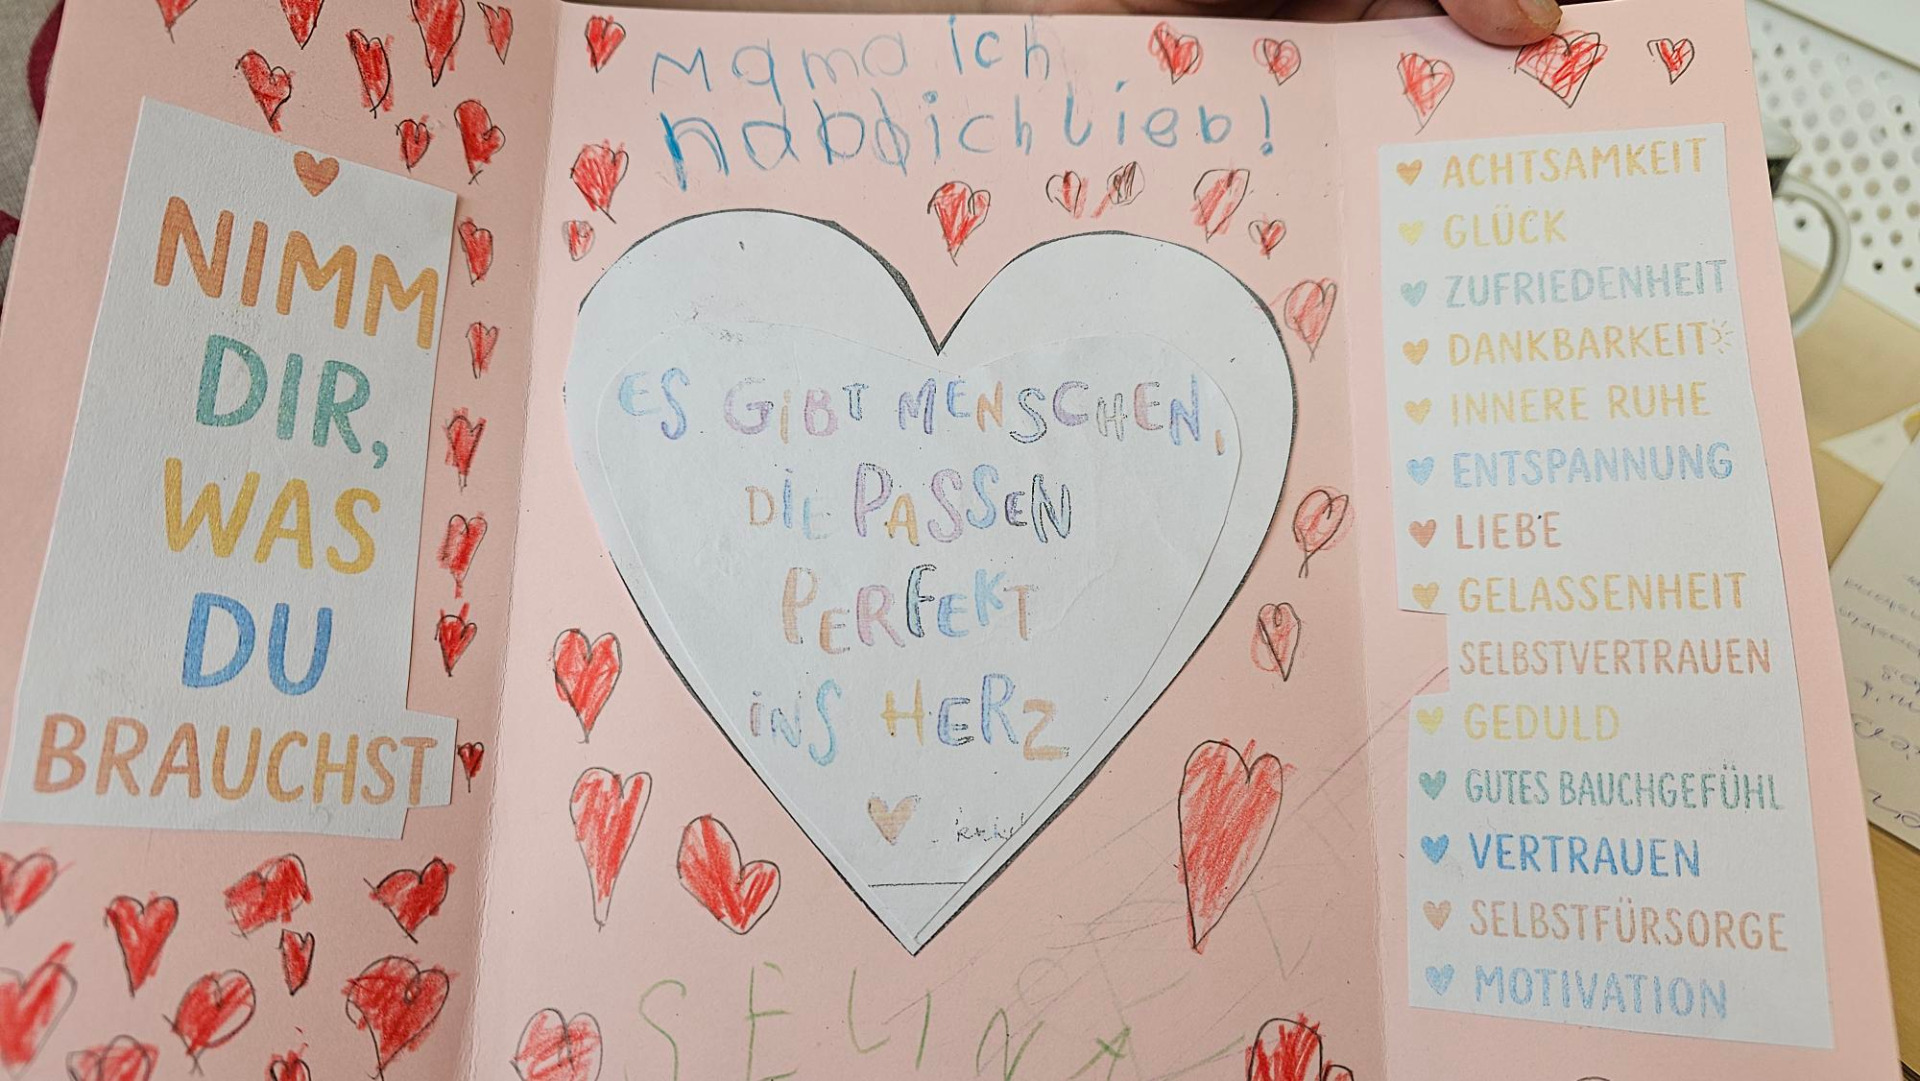 NIMM
DIR,
WAS
DU
BRAUCHST
Mama ich
habdich lieb!
ES GIBT MENSCHEN,
DIE PASSEN
PERFEKT
INS HERZ
SELINA
ACHTSAMKEIT
GLÜCK
ZUFRIEDENHEIT
DANKBARKEIT
INNERE RUHE
ENTSPANNUNG
LIEBE
GELASSENHEIT
SELBSTVERTRAUEN
GEDULD
GUTES BAUCHGEFÜHL
VERTRAUEN
SELBSTFÜRSORGE
MOTIVATION